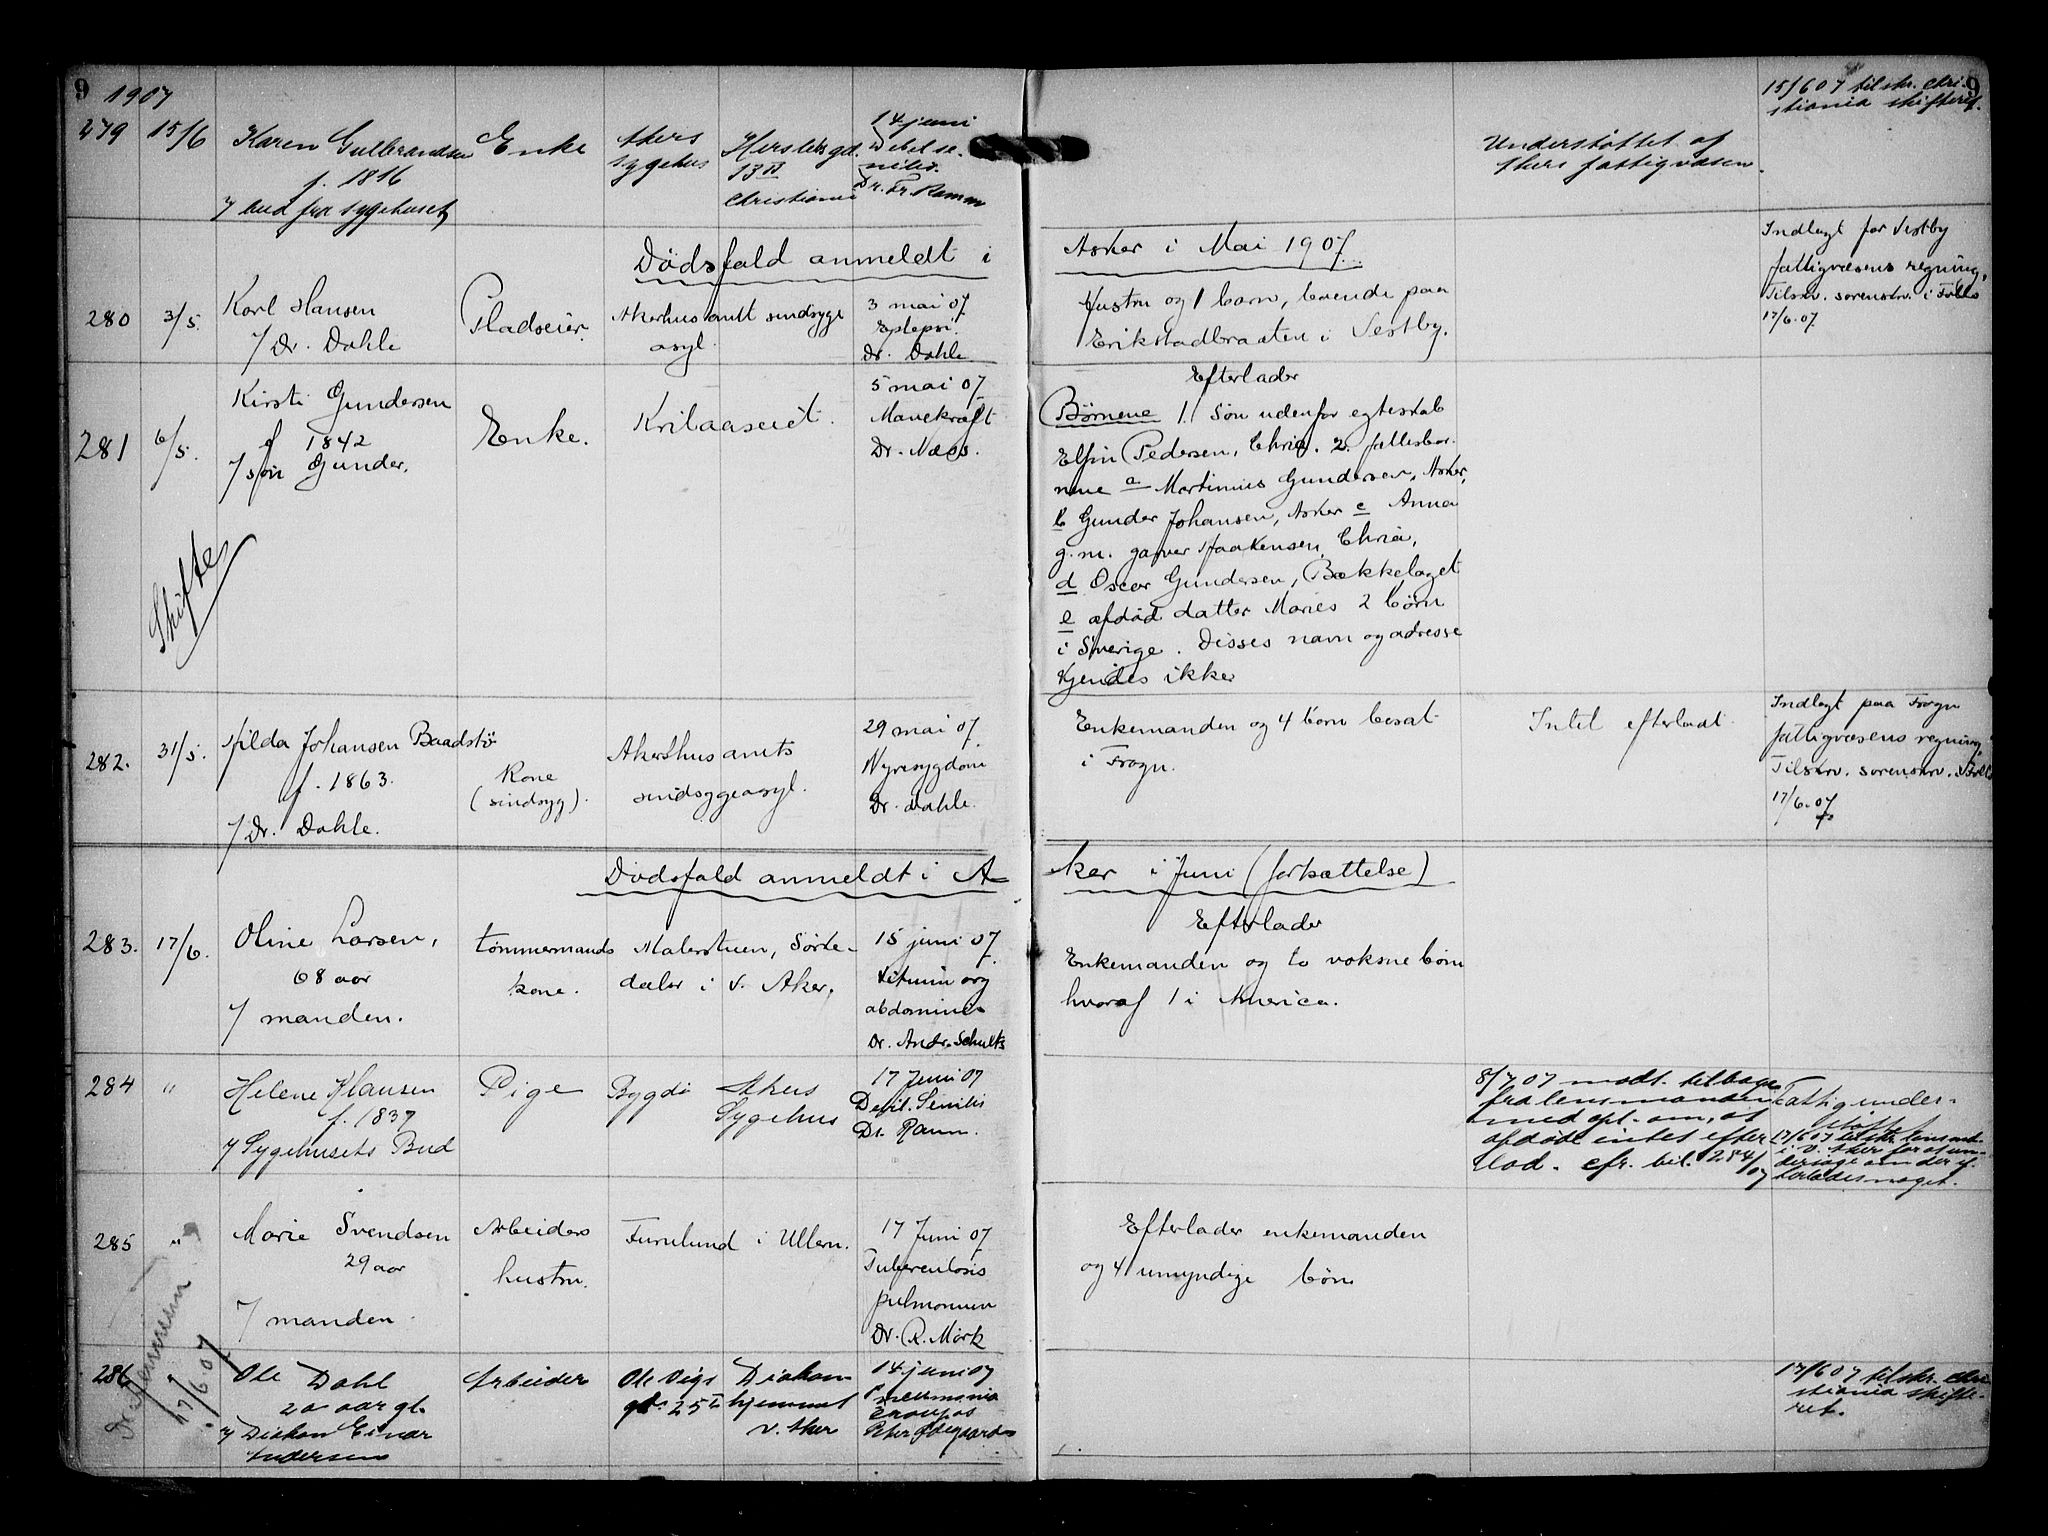 9
1907
279 15/6 Karen Gulbrandsen Enke Akers
sygehus Herslebsgd.
13 II
Christiania 14 juni
Debil. se-
nilis.
Dr. Fr. Ramm
f. 1816
v/ bud fra sygehuset
Understøttet af
Akers fattigvæsen.
15/6 07 tilskr. Chri-
stiania skifteret.
9
Dødsfald anmeldt i Asker i Mai 1907.
280 3/5. Karl Hansen
v/ Dr. Dahle
Pladseier.
Akershus amt sindsyge
asyl.
3 mai 07.
Eplepsi.
Dr. Dahle
Hustru og 1 barn, boende paa
Erikstadbraaten i Vestby.
Indlagt for Vestby
fattigvæsens regning,
Tilskr. sorenskr. i Follo
17/6.07
281 6/5. Kirsti Gundersen
f. 1842
v/ søn Gunder.
Skifte
Enke.
5 mai 07
Mavekræft
Dr. Næss.
Efterlader
Børnene 1. Søn udenfor egteskab
Pedersen, Chria. 2. fellesbør-
nene a Martinius Gundersen, Asker,
b Gunder Johansen, Asker c Anna
g.m. garver Haakensen, Chria,
d Oscar Gundersen, Bækkelaget
e afdød datter Maries 2 børn
i Sverige. Disses navn og adresse
kjendes ikke
282. 31/5. Hilda Johansen Baadstø
f. 1863.
v/ Dr. Dahle.
Kone
(sindsyg).
Akershus amts
sindsygeasyl.
29 mai 07.
Nyresygdom
Dr. Dahle.
Enkemanden og 4 børn bosat
i Frogn.
Intet efterladt
Indlagt paa Frogn
fattigvæsens regning,
Tilskrv. sorenskrv. i Follo
17/6.07
Dødsfald anmeldt i Aker i Juni (fortsættelse)
283. 17/6. Oline Larsen,
68 aar
v/ manden.
tømmermands
kone.
Malerstuen, Sørke-
dalen i V. Aker.
15 juni 07.
abdominis
Dr. Andr. Schultz
Efterlader
Enkemanden og to voksne børn
hvoraf 1 i America.
284 " Helene Klausen
f. 1837
v/ Sygehusets Bud
Pige
Bygdø
Akers
Sygehus
17 Juni 07
Debil. Senilis
Dr. Ramm.
8/7 07 modt. tilbage
fra lensmanden
med opl. om, at
afdøde intet efter
lod. cfr. bil. 284/07
Fattigunder-
støttet
17/6 07 tilskr. lensmd.
i V. Aker for at un-
dersøge om der ef-
terlades noget.
285 " Marie Svendsen
29 aar
v/ manden.
Arbeiders
hustru.
Furulund i Ullern.
17 Juni 07
Tuberculosis
pulmonum
Dr. R. Mørk
Efterlader enkemanden
og 4 umyndige børn
17/6.07
286 Ole Dahl
20 aar gl.
v/ Diakon Einar
Andersen
Arbeider
Ole Vigs
gd. 25 I
Diakon-
hjemmet
V. Aker
14 juni 07
Pneumonia
croupos
Peter Ødegaard
17/6 07 tilskr. Chri-
stiania skifte-
ret.